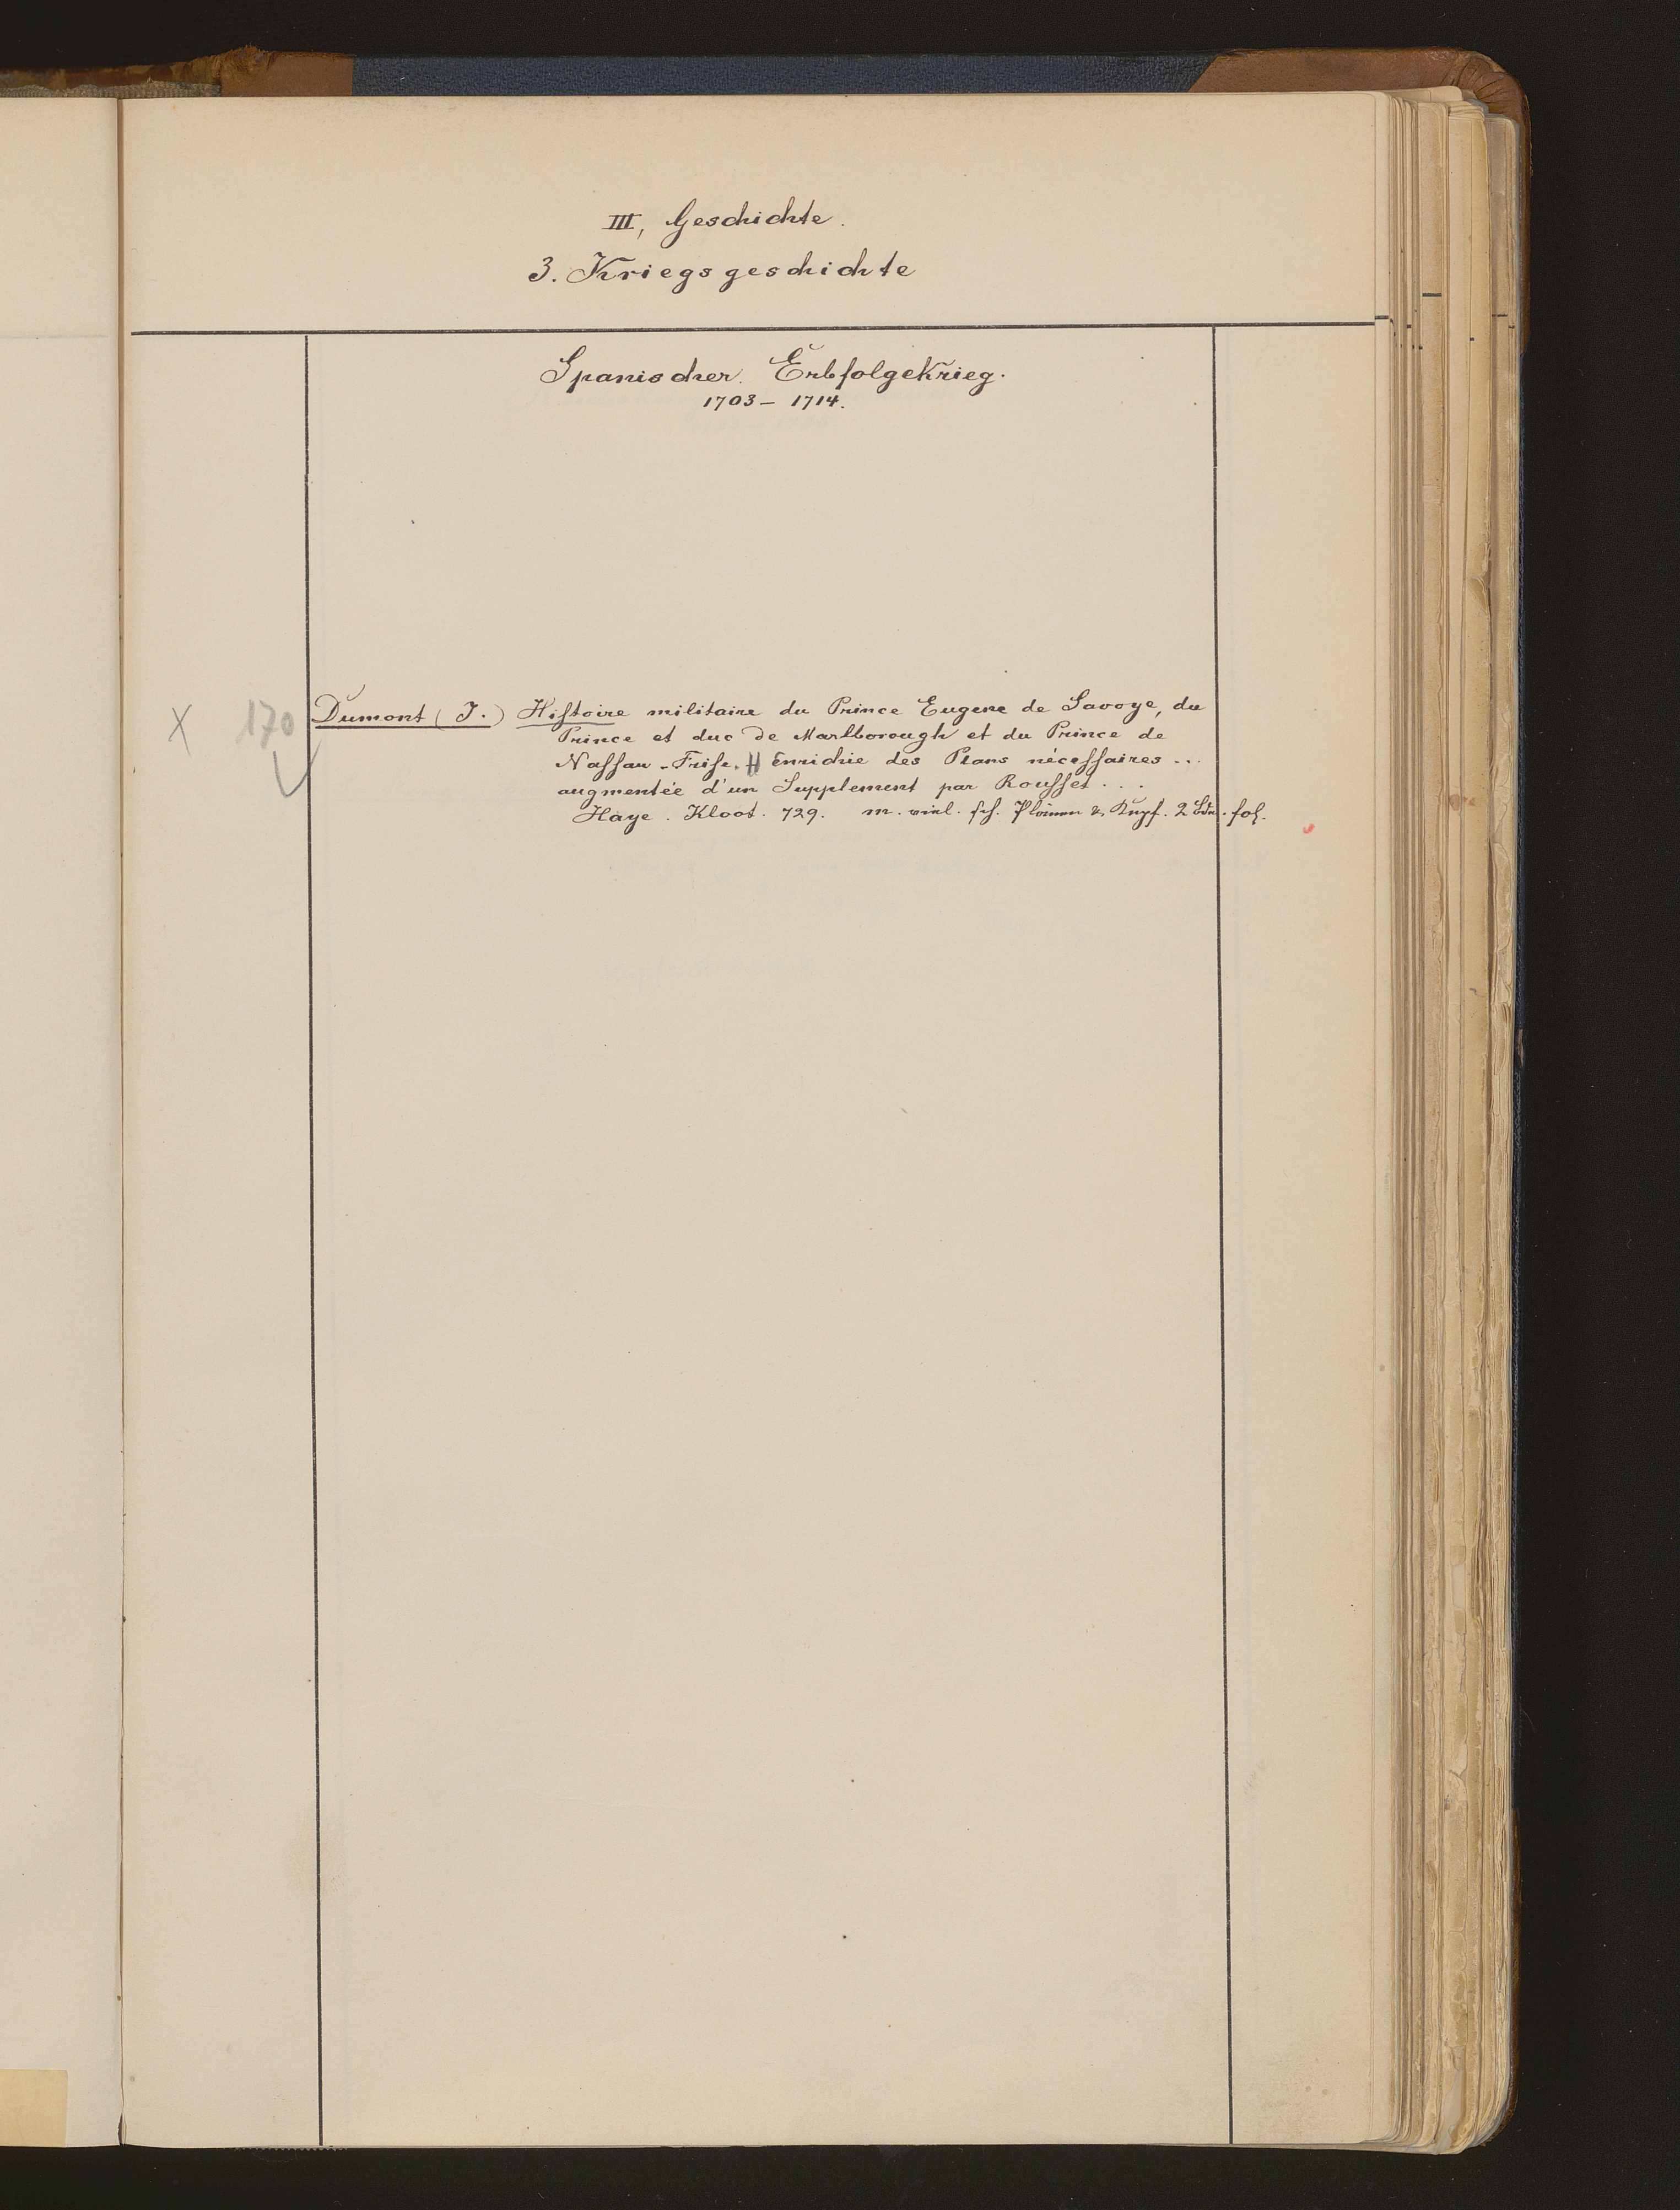 III, Geschichte.
3. Kriegsgeschichte
Spanischer Erbfolgekrieg.
1703 – 1714.
X 170 Dumont (J.) Histoire militaire du Prince Eugene de Savoye, du
Prince et duc de Marlborough et du Prince de
Nassau-Frise. Enrichie des Plans nécessaires ...
augmentée d'un Supplement par Rousset ...
Haye. Kloot. 729. m. viel. sch. Plänen & Kupf. 2 Bde. fol.